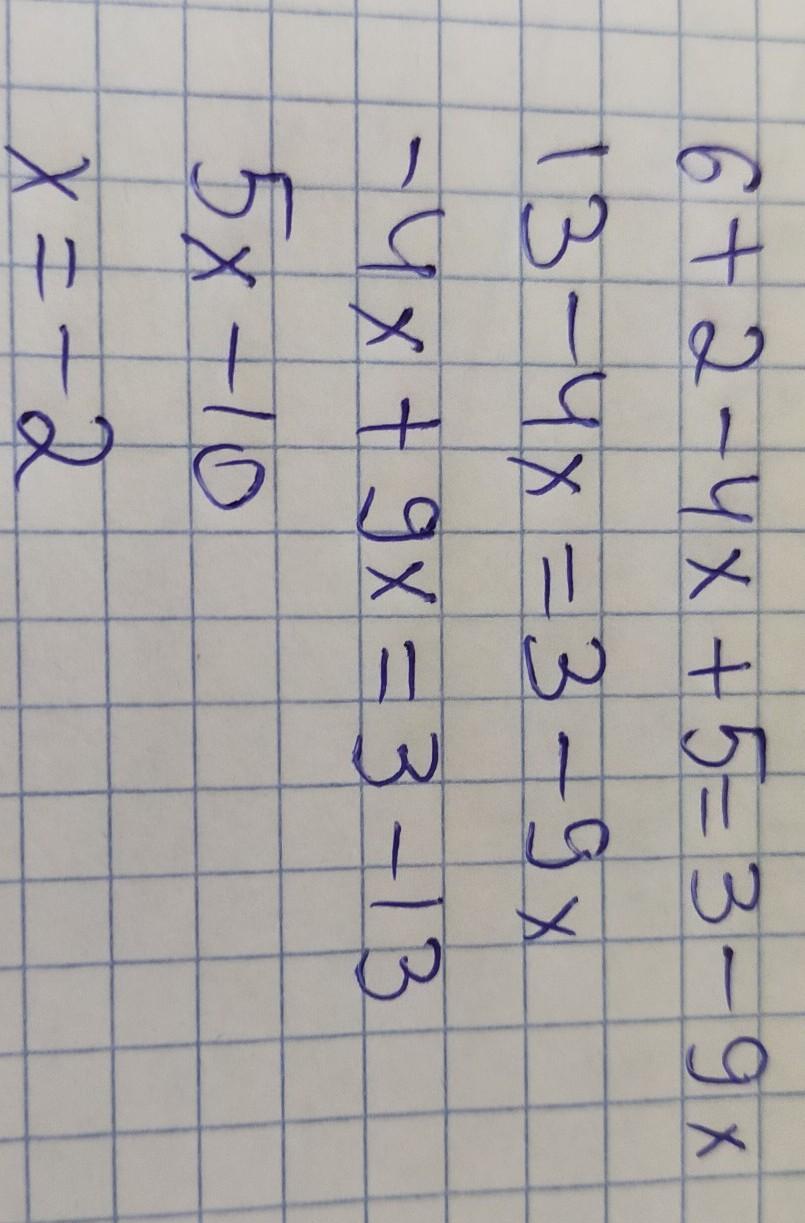 6+2-4x+5=3-9x
13-4x=3-9x
-4x+9x=3-13
5x-10
x=-2